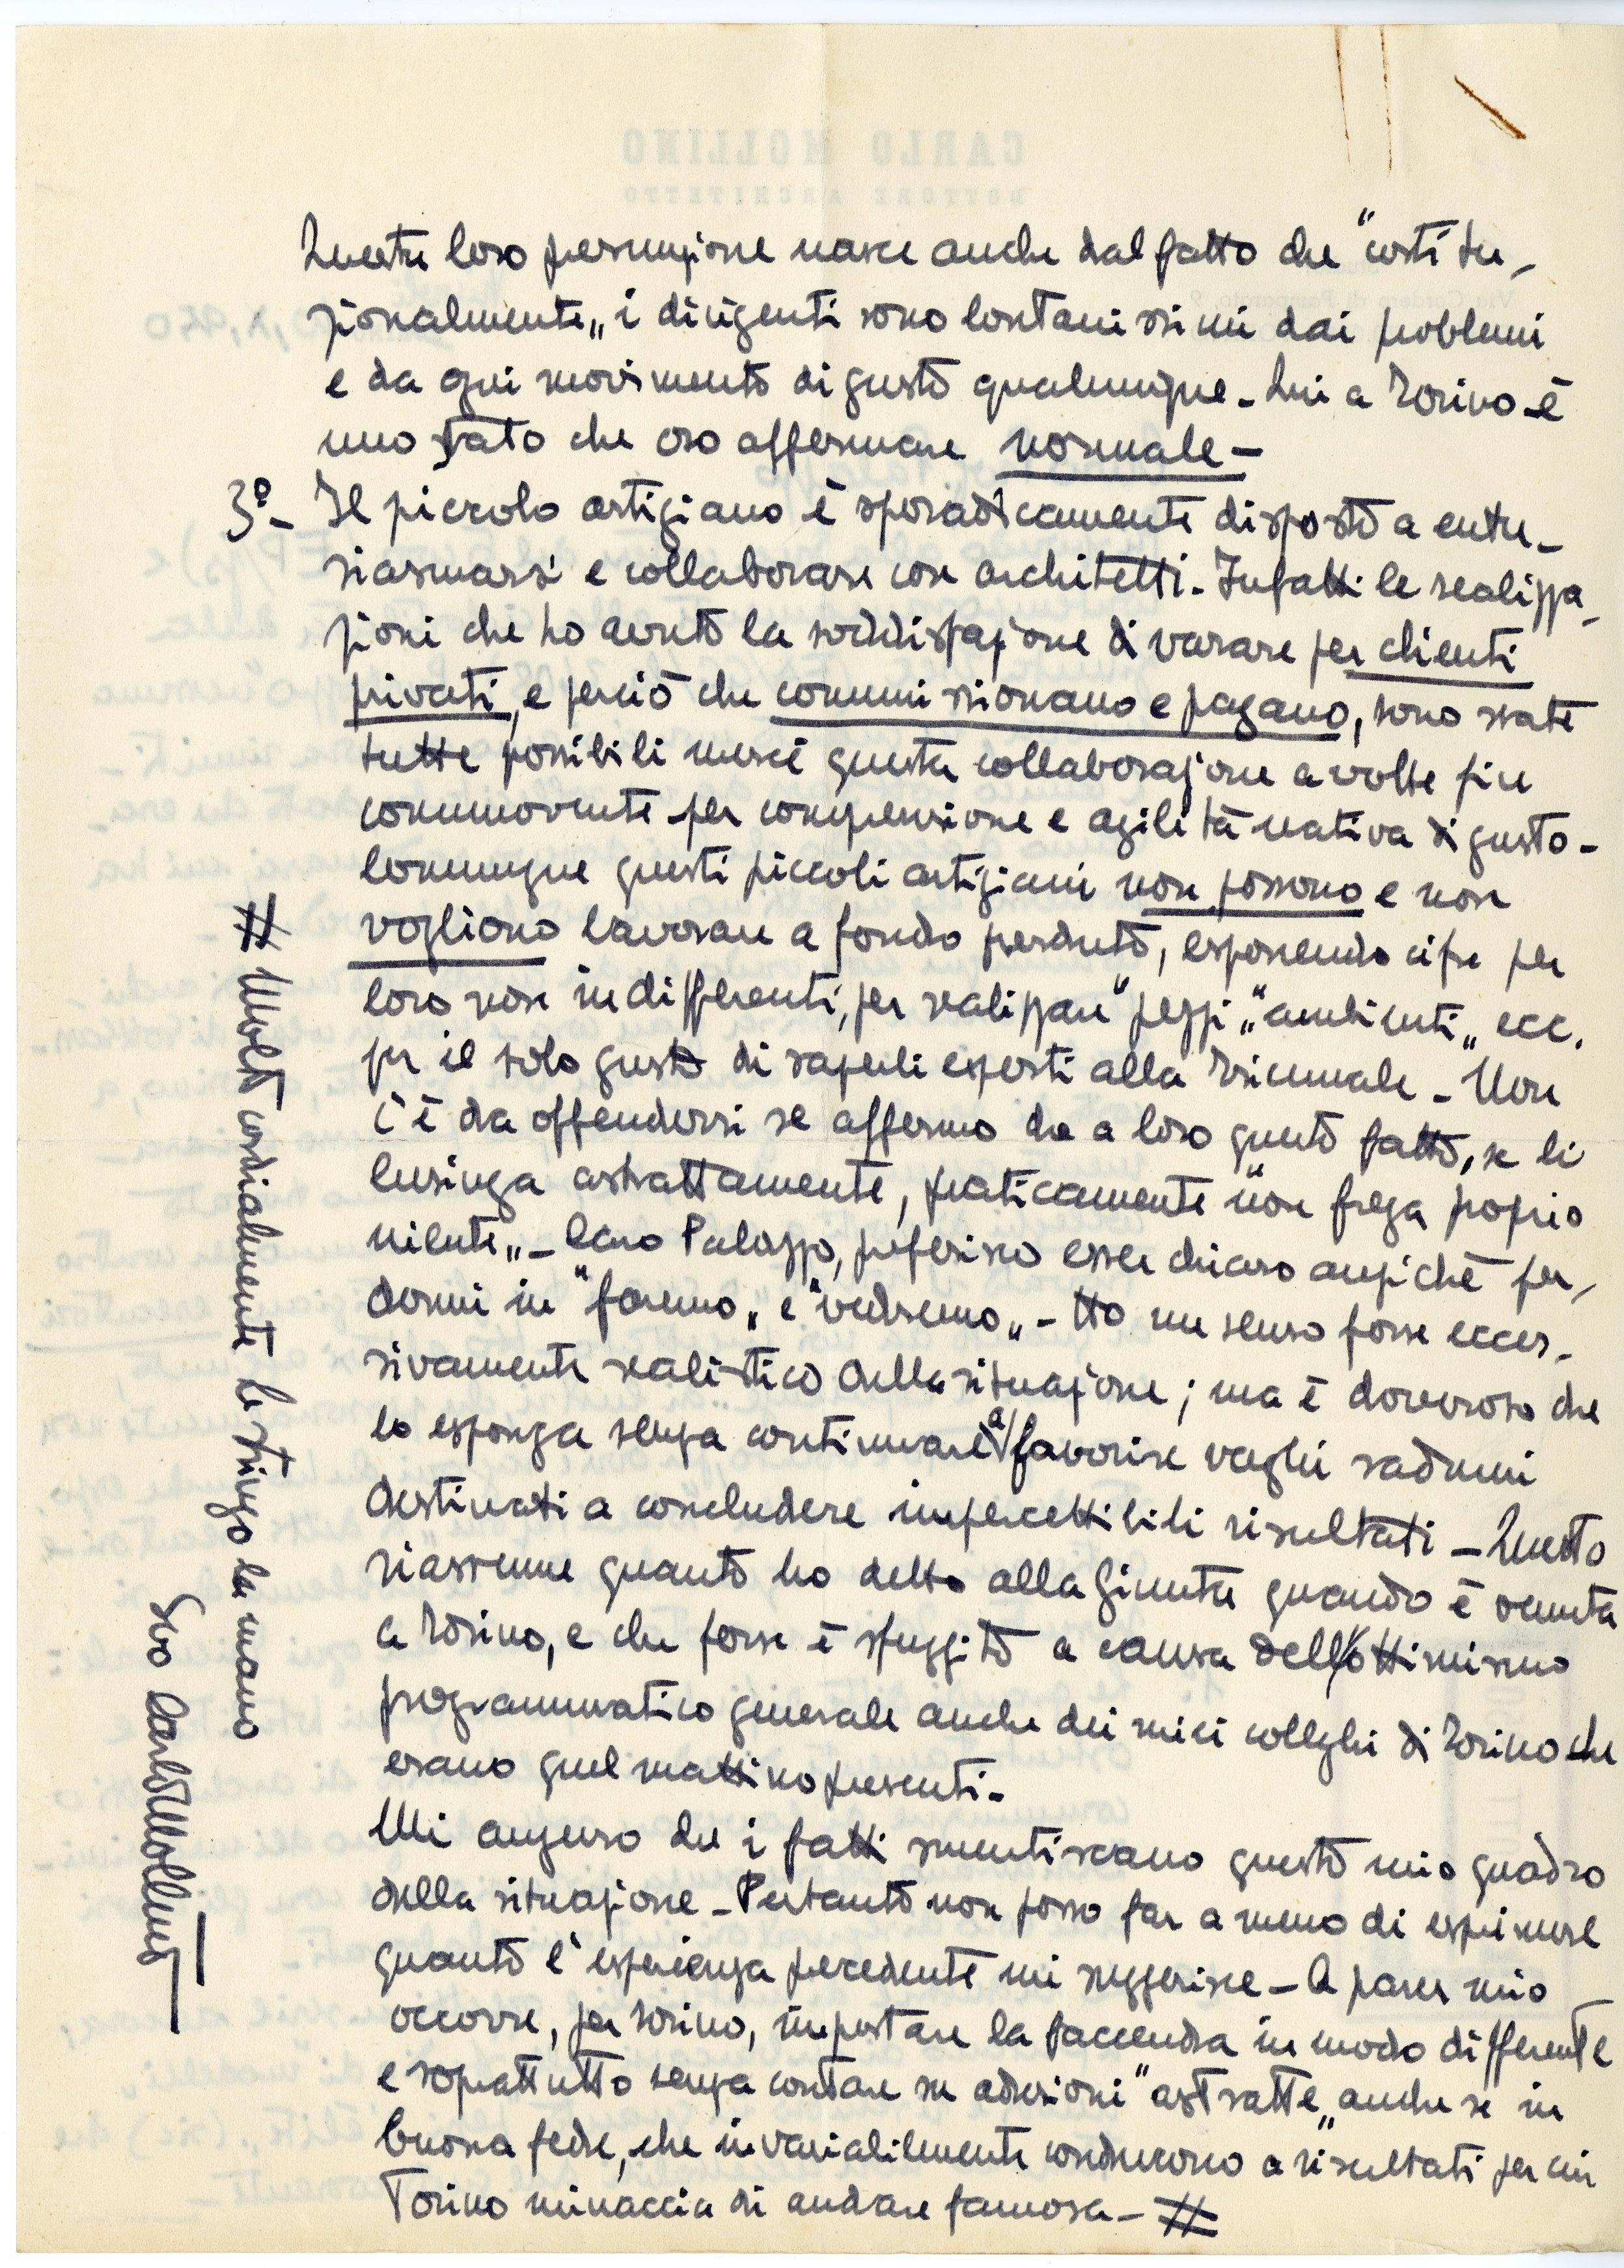 Questa loro presunzione nasce anche dal fatto che "costitu-
zionalmente„ i dirigenti sono lontanissimi dai problemi
e da ogni movimento di gusto qualunque - Qui a Torino è
uno stato che oso affermare normale -
3º- Il piccolo artigiano è sporadicamente disposto a entu-
siasmarsi e collaborare con architetti - Infatti le realizza-
zioni che ho avuto la soddisfazione di varare per clienti
privati, e perciò che commissionano e pagano, sono state
tutte possibili mercè questa collaborazione a volte fin
commovente per comprensione e agilità nativa di gusto -
Comunque questi piccoli artigiani non possono e non
vogliono lavorare a fondo perduto, esponendo cifre per
loro non indifferenti, per realizzare "pezzi„ "ambienti„ ecc.
per il solo gusto di saperli esposti alla Triennale - Non
c'è da offendersi se affermo che a loro questo fatto, se li
lusinga astrattamente, praticamente "non frega proprio
niente„ - Caro Palazzo, preferisco esser chiaro anzichè per-
dermi in "faremo„ e "vedremo„ - Ho un senso forse ecces-
sivamente realistico della situazione; ma è doveroso che
lo esponga senza continuare a favorire vaghi raduni
destinati a concludere impercettibili risultati - Questo
riassume quanto ho detto alla Giunta quando è venuta
a Torino, e che forse è sfuggito a causa dell'ottimismo
programmatico generale anche dei miei colleghi di Torino che
erano quel mattino presenti -
Mi auguro che i fatti smentiscano questo mio quadro
della situazione - Pertanto non posso far a meno di esprimere
quanto l'esperienza precedente mi suggerisce - A parer mio
occorre, per Torino, impostare la faccenda in modo differente
e soprattutto senza contare su adesioni "astratte„ anche se in
buona fede, che invariabilmente conducono a risultati per cui
Torino minaccia di andare famosa - #
# Molto cordialmente le stringo la mano
Suo Carlo Mollino
CARLO MOLLINO
DOTTORE ARCHITETTO